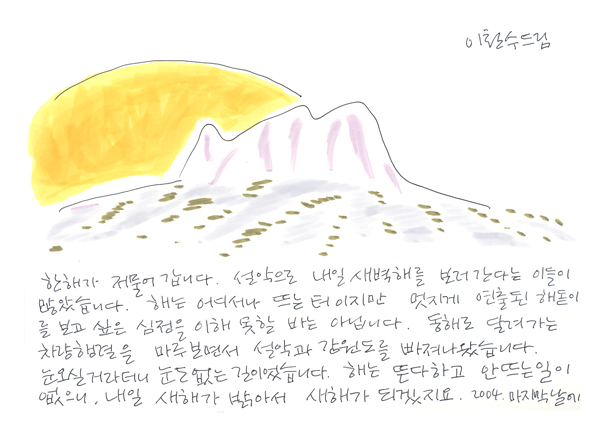 이철수드림
한해가 저물어 갑니다. 설악으로 내일 새벽해를 보러 간다는 이들이
많았습니다. 해는 어디서나 뜨는 터이지만 멋지게 연출된 해돋이
를 보고 싶은 심정을 이해 못할 바는 아닙니다. 동해로 달려가는
차량행렬을 마주보면서 설악과 강원도를 빠져나왔습니다.
눈오실거라더니 눈도 없는 길이었습니다. 해는 뜬다하고 안뜨는일이
없으니, 내일 새해가 밝아서 새해가 되겠지요. 2004. 마지막날에